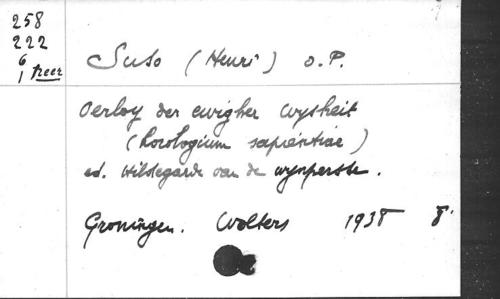 258
222
6
1 treer
Suso (Henri) O.P.
Oerloy der ewigher wysheit
(horologium sapientiae)
ed. Hildegarde van de Wynpersse.
Groningen. Wolters 1938 8°